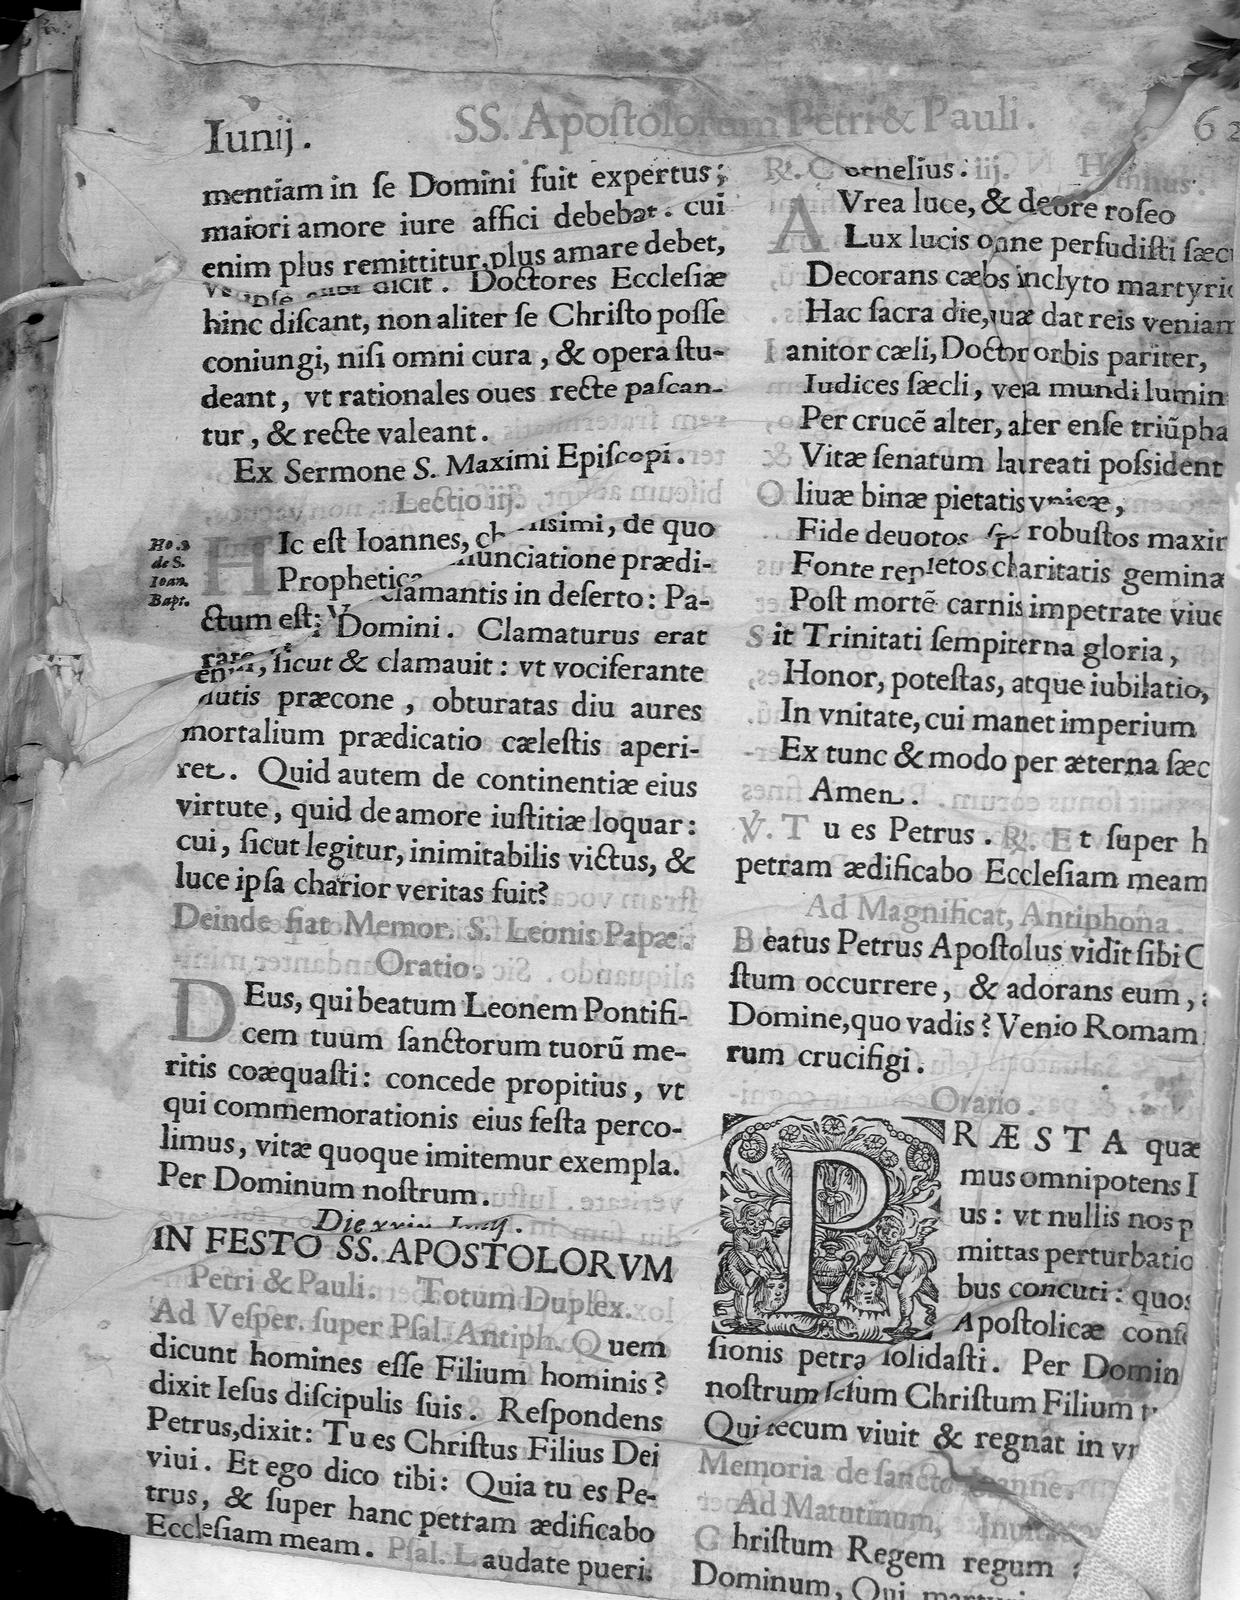 Iunij.
SS. Apostolorum Petri & Pauli.
62
mentiam in ſe Domini fuit expertus;
maiori amore iure affici debebat. cui
enim plus remittitur, plus amare debet,
dicit. Doctores Eccleſiæ
hinc diſcant, non aliter ſe Chriſto poſſe
coniungi, niſi omni cura, & opera ſtu-
deant, vt rationales oues recte paſcan-
tur, & recte valeant.
Ex Sermone S. Maximi Epiſcopi.
Lectio iij.
Ho.3
de S.
Ioan.
Bapt.
HIc eſt Ioannes, de quo
prædi-
ctum eſt: clamantis in deſerto: Pa-
Domini. Clamaturus erat
ſicut & clamauit: vt vociferante
præcone, obturatas diu aures
mortalium prædicatio cæleſtis aperi-
ret. Quid autem de continentiæ eius
virtute, quid de amore iuſtitiæ loquar:
cui, ſicut legitur, inimitabilis victus, &
luce ipſa charior veritas fuit?
Deinde fiat Memor. S. Leonis Papæ.
Oratio.
DEus, qui beatum Leonem Pontifi-
cem tuum ſanctorum tuorũ me-
ritis coæquaſti: concede propitius, vt
qui commemorationis eius feſta perco-
limus, vitæ quoque imitemur exempla.
Per Dominum noſtrum.
Die
IN FESTO SS. APOSTOLORVM
Petri & Pauli. Totum Duplex.
Ad Veſper. ſuper Pſal. Antiph. Quem
dicunt homines eſſe Filium hominis?
dixit Ieſus diſcipulis ſuis. Reſpondens
Petrus, dixit: Tu es Chriſtus Filius Dei
viui. Et ego dico tibi: Quia tu es Pe-
trus, & ſuper hanc petram ædificabo
Eccleſiam meam. Pſal. Laudate pueri.
℟. Cornelius. iij. Hymnus.
AVrea luce, & decore roſeo
Lux lucis perfudiſti ſæc
Decorans inclyto martyrio
Hac ſacra die, dat reis veniam
Ianitor cæli, Doctor orbis pariter,
Iudices ſæcli, vera mundi lumin
Per crucẽ alter, alter enſe triũpha
Vitæ ſenatum laureati poſſident
Oliuæ binæ pietatis vnicæ,
Fide deuotos robuſtos maxim
Fonte repletos charitatis geminæ
Poſt mortẽ carnis impetrate viue
Sit Trinitati ſempiterna gloria,
Honor, poteſtas, atque iubilatio,
In vnitate, cui manet imperium
Ex tunc & modo per æterna ſæc
Amen.
℣. Tu es Petrus. ℟. Et ſuper h
petram ædificabo Eccleſiam meam
Ad Magnificat, Antiphona.
Beatus Petrus Apoſtolus vidit ſibi C
ſtum occurrere, & adorans eum,
Domine, quo vadis? Venio Romam
rum crucifigi.
Oratio.
PRÆSTA quæ
mus omnipotens
us: vt nullis nos p
mittas perturbatio
bus concuti: quos
Apoſtolicæ conf
ſionis petra ſolidaſti. Per Domin
noſtrum Ieſum Chriſtum Filium
Qui tecum viuit & regnat in
Memoria de ſancto Ioanne.
Ad Matutinum,
Chriſtum Regem regum
Dominum, Qui